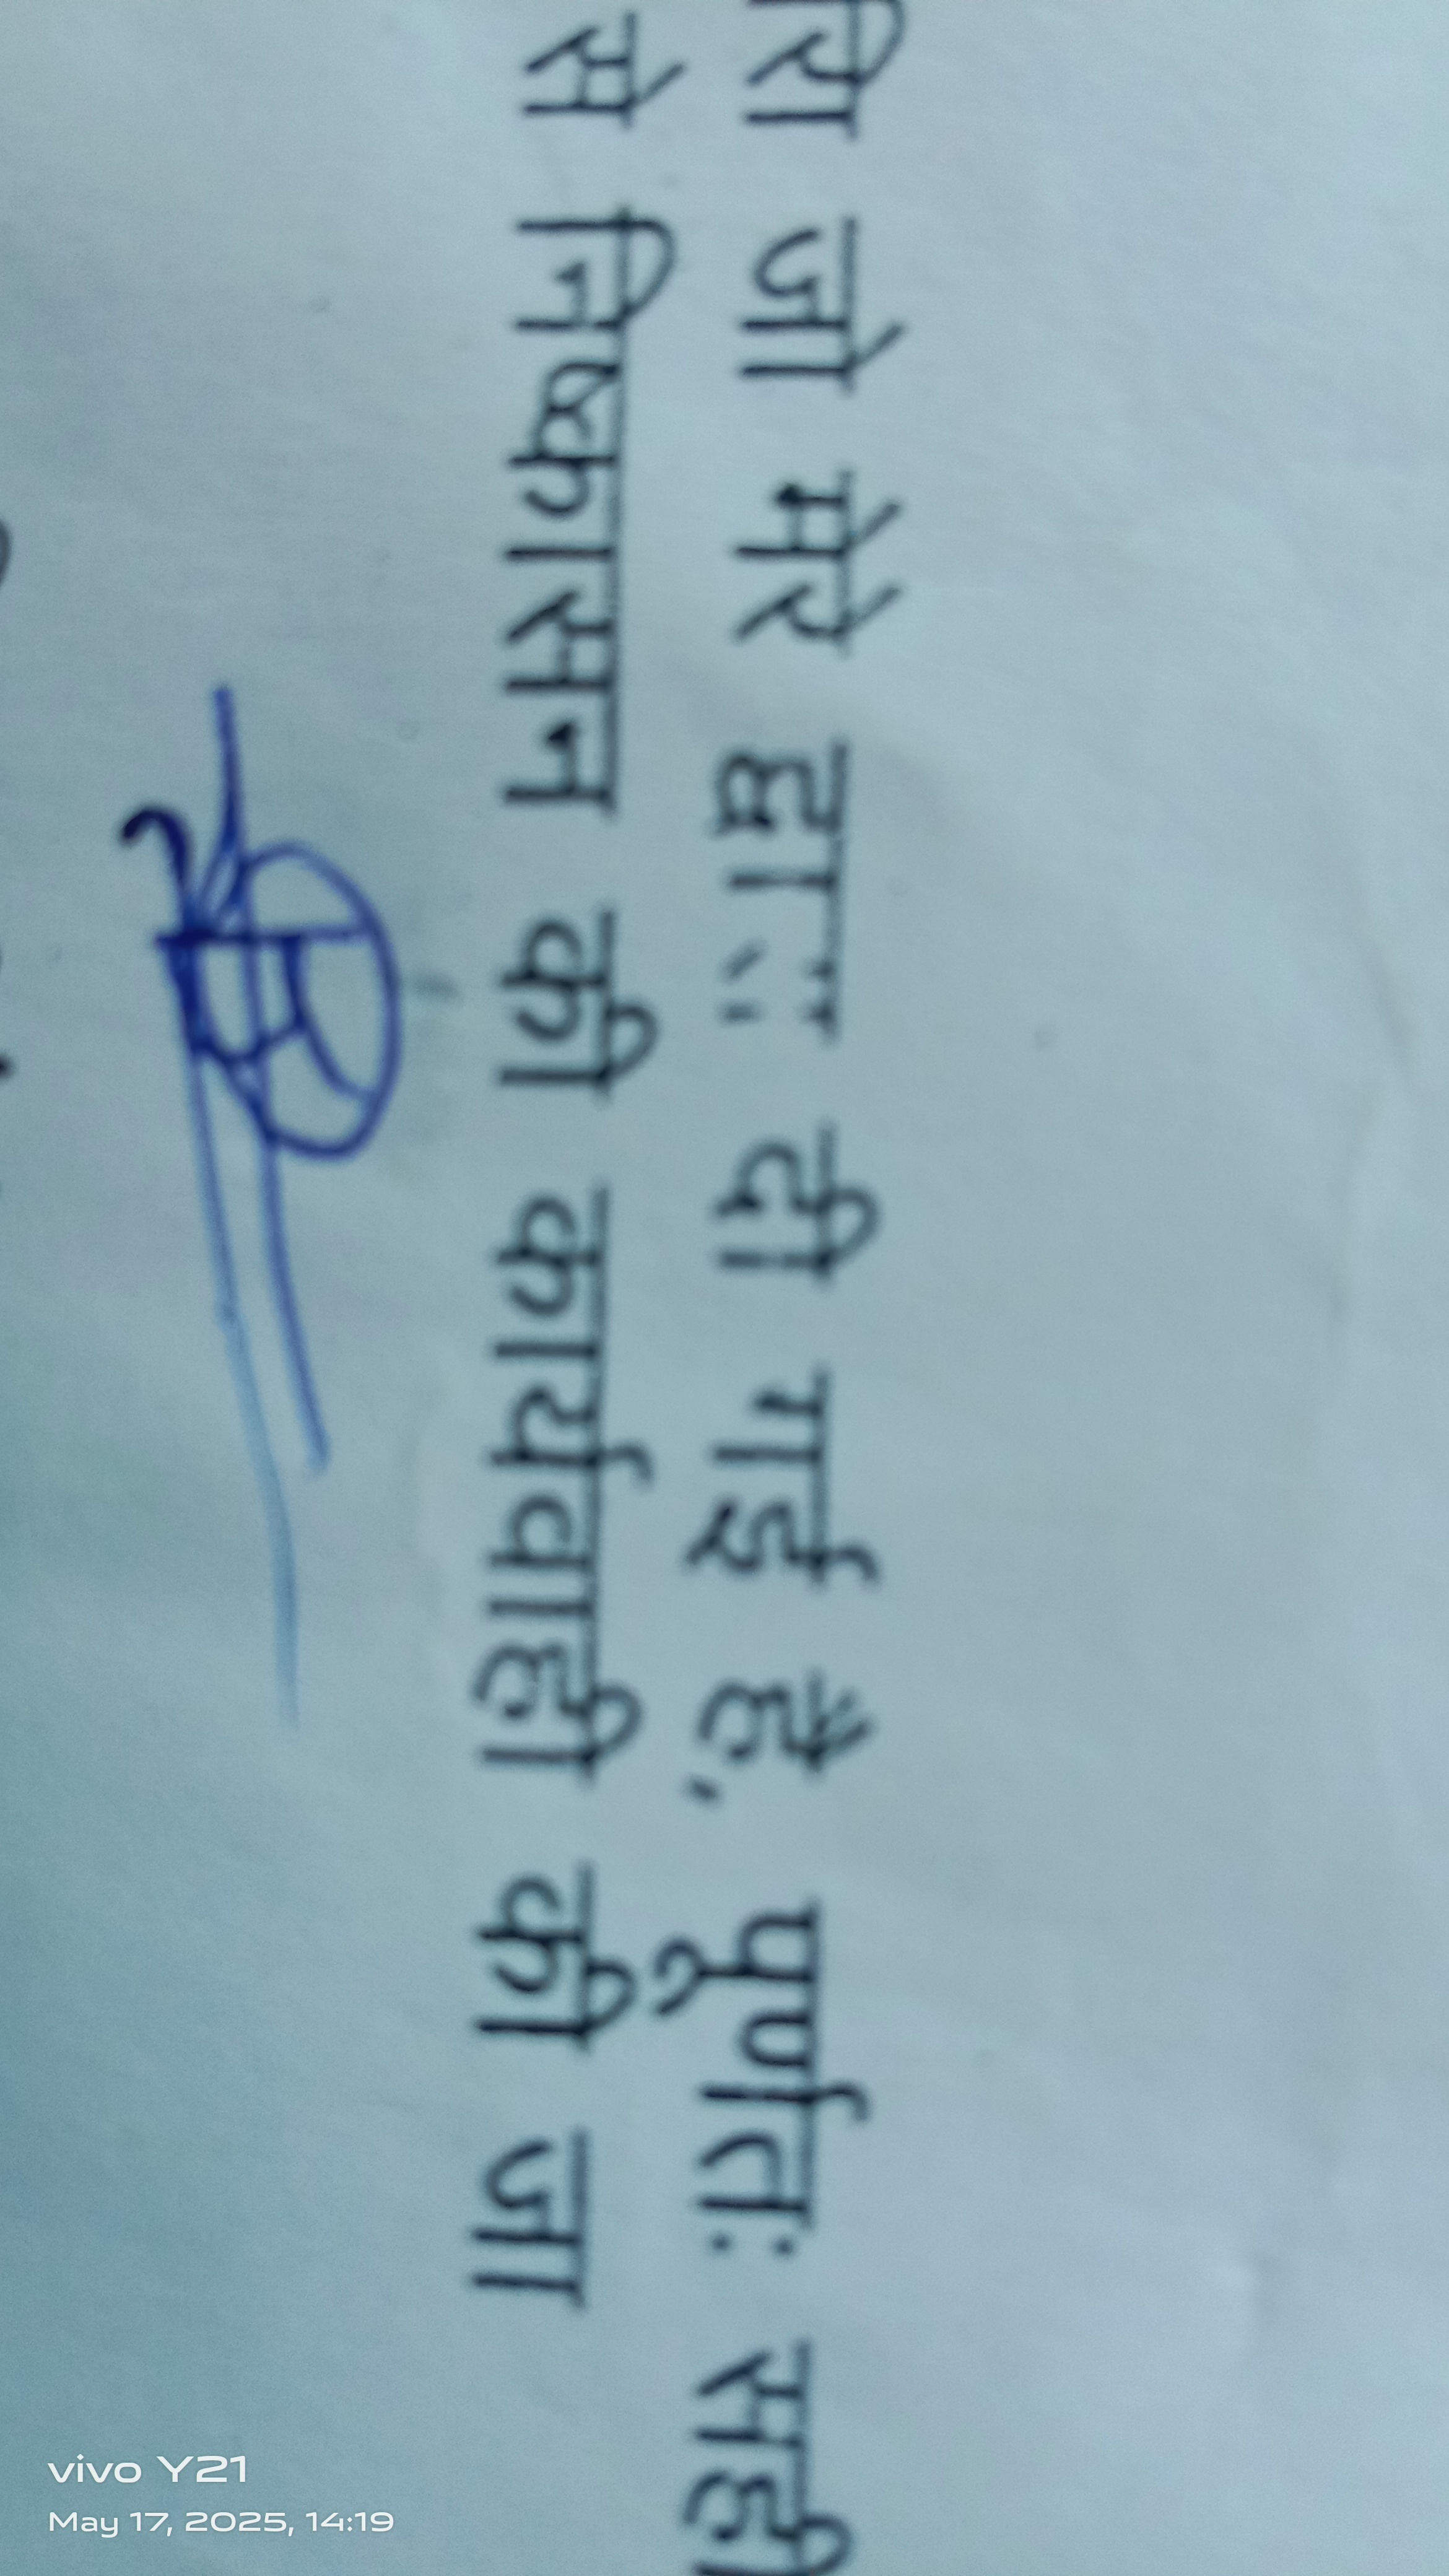 जो मेरे द्वारा दी गई है, पूर्णतः सही
से निष्कासन की कार्यवाही की जा
vivo Y21
May 17, 2025, 14:19